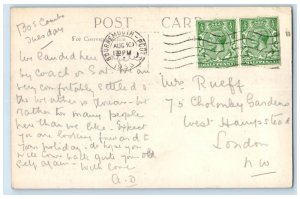 POST CARD
For Corre
BOURNEMOUTH-POOLE
AUG 10
8 PM
Tuesday
We landed here
by coach on Sat. We are
very comfortably settled &
the weather is glorious - but
rather too many people
here than we like. Expect
you are looking forward to
your holiday - do hope you
will come back quite your old
self again - With love
A.D
Mrs Rueff
75 Cholmley Gardens
West Hampstead
London
NW